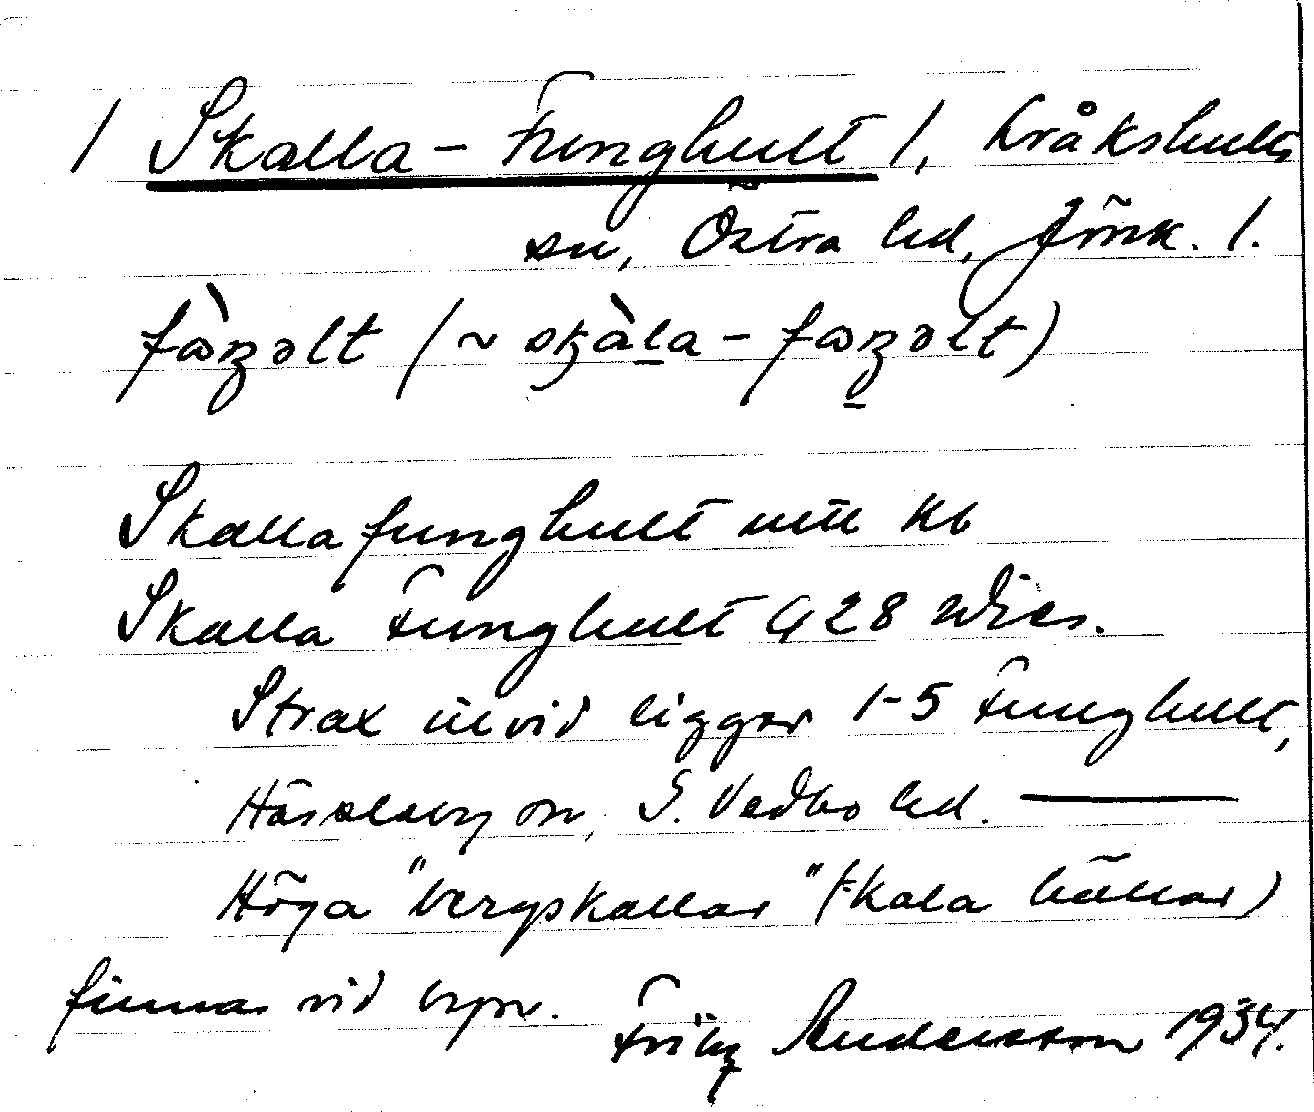 / Skalla-Funghult /, Kråkshults
sn, Östra hd, Jönk. l.
fàŋəlt (~ skàla-faŋəlt)
Skallafunghult mtl kb
Skalla Funghult G 28 Wies.
Strax utvid ligger 1-5 Funghult,
Hässleby sn, S. Vedbo hd. —
Höga "bergskallar" (= kala hällar)
finnas vid byn. Fritz Andersson 1934.